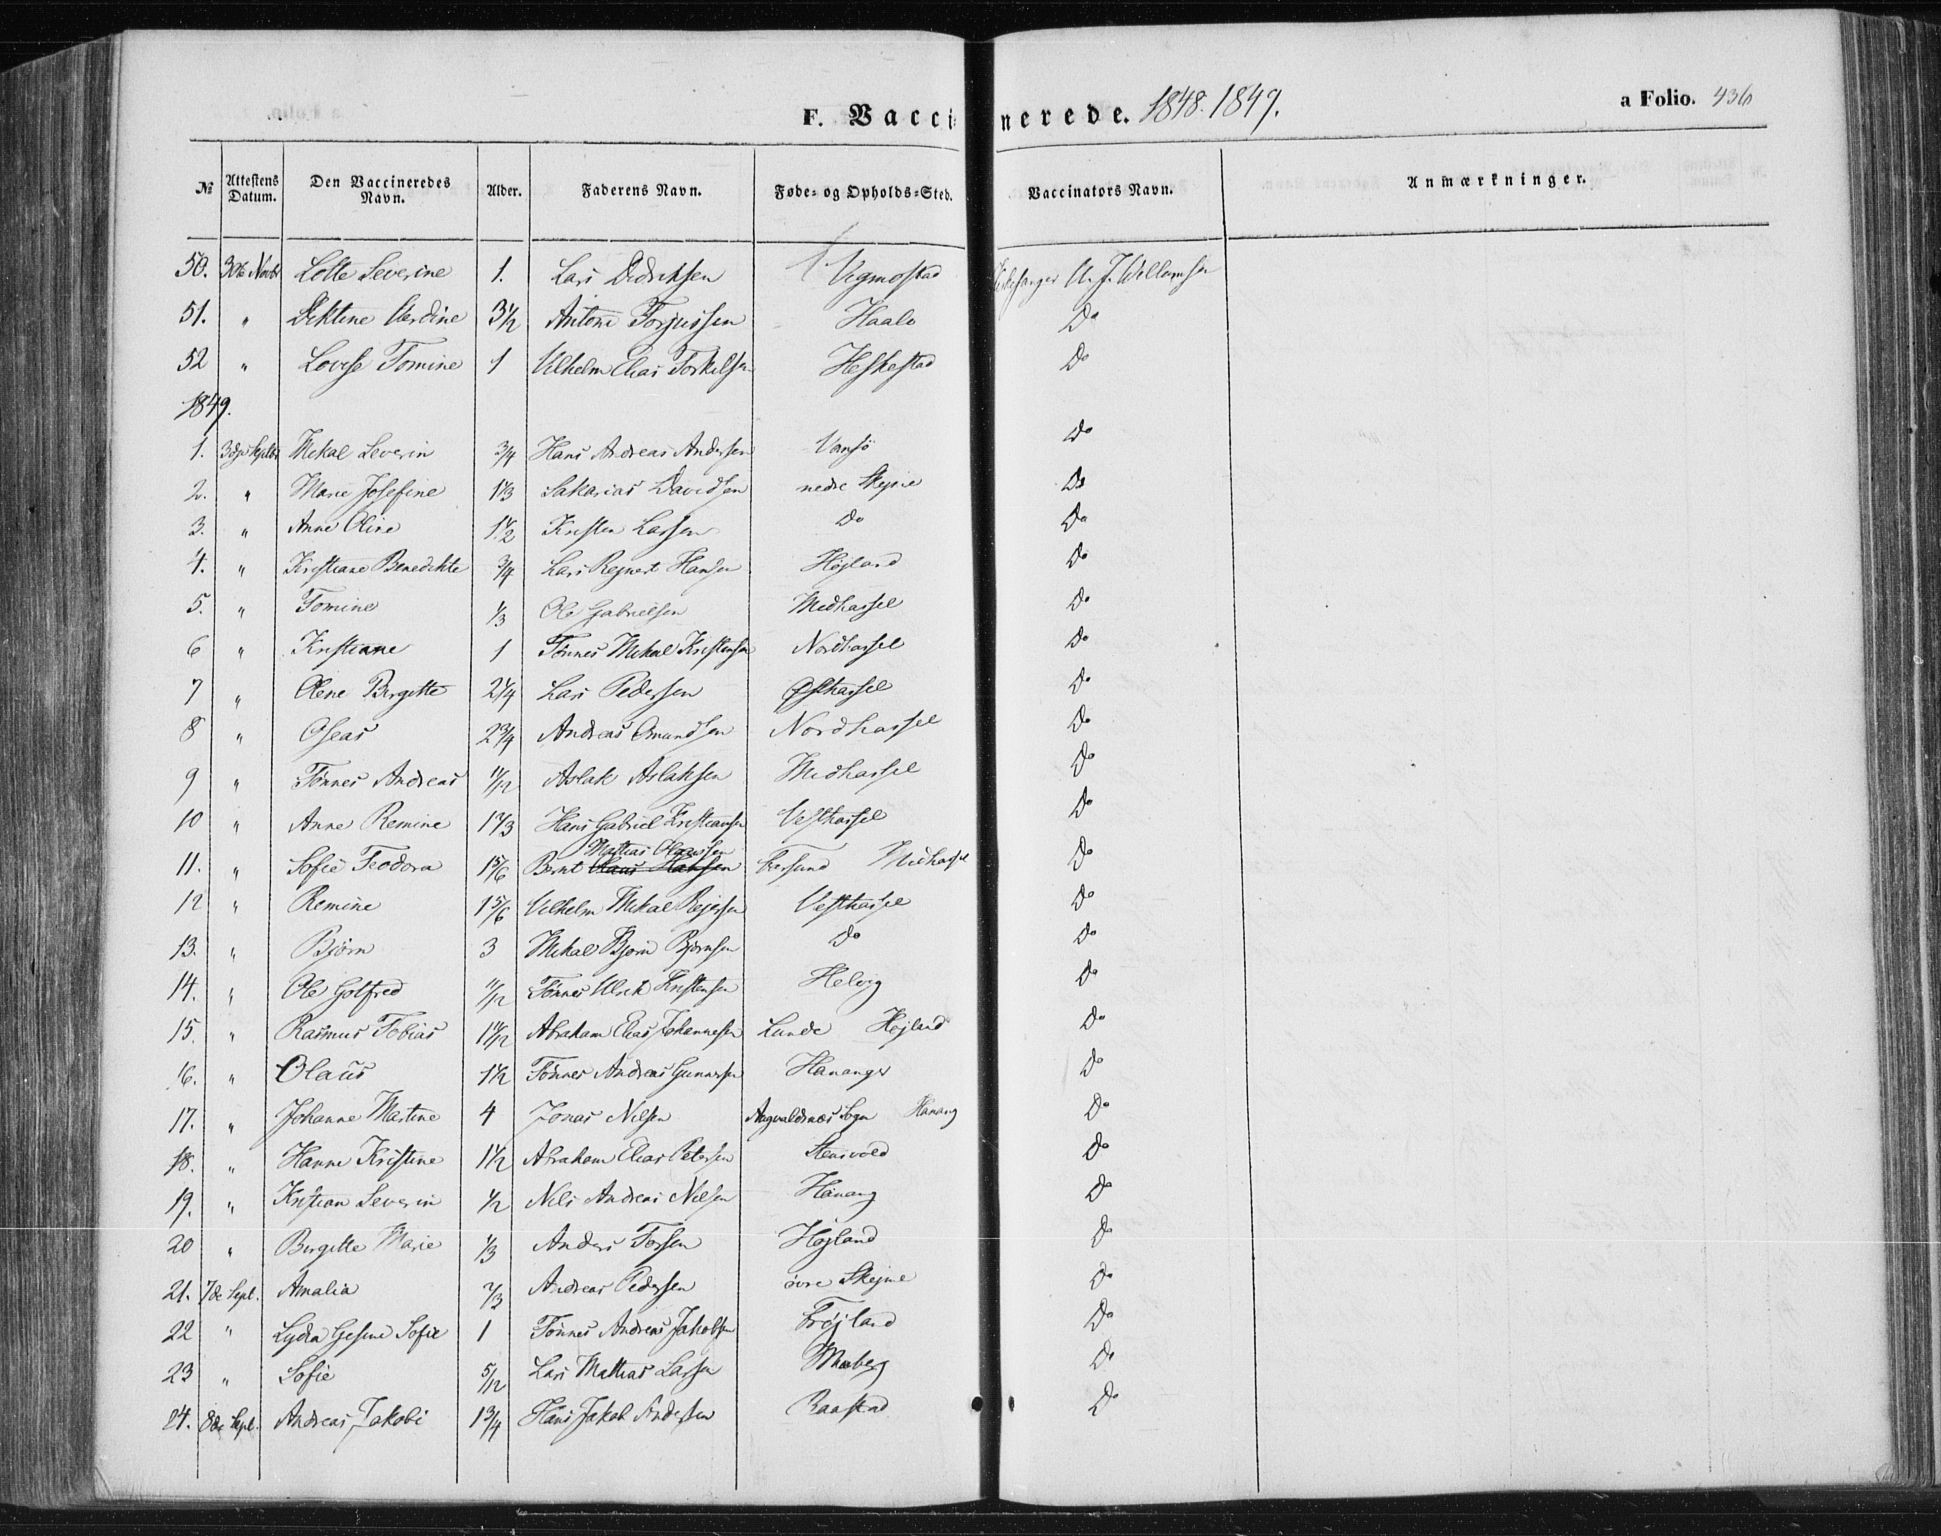 F. Vaccinerede. 1848. 1849. a Folio. 436
No Attestens Datum. Den Vaccineredes Navn. Alder. Faderens Navn. Føde- og Opholds-Sted. Vaccinators Navn. Anmærkninger.
50. 30te Novbr Lotte Severine 1. Lars Didriksen Vigmostad Kirkesanger A. J. Willumsen
51. " Dektine Verdine 3½ Antoni Torjussen Haale Do
52 " Lovise Tomine 1 Vilhelm Elias Torkelsen Heskestad Do
1849.
1. 3dje Septbr Mekal Severin 3/4 Hans Andreas Andersen Vansø Do
2. " Marie Josefine 1 1/3 Sakarias Davidsen nedre Skejne Do
3. " Anne Oline 1½ Kristen Lassen Do Do
4. " Kristiane Benedikte 3/4 Lars Rejnert Hansen Højland Do
5. " Tomine 1/3 Ole Gabrielsen Midhassel Do
6 " Kristiane 1 Tønnes Mekal Kristensen Nordhassel Do
7 " Olene Birgitte 2 1/4 Lars Pedersen Østhassel Do
8 " Oseas 2 3/4 Andreas Omundsen Nordhassel Do
9 " Tønnes Andreas 11/12 Aslak Aslaksen Midhassel Do
10 " Anne Remine 1 2/3 Hans Gabriel Kristiansen Vesthassel Do
Mattias Olaussen
11. " Sofie Teodora 1 5/6 Bernt Olaus Hansen Farsund Midhassel Do
12 " Remine 1 5/6 Vilhelm Mekal Rejersen Vesthassel Do
13. " Bjørn 3 Mekal Bjørn Bjørnsen Do Do
14. " Ole Gotfred 11/12 Tønnes Ulrik Kristensen Helvig Do
15. " Rasmus Tobias 1 1/12 Abraham Elias Johannesen Lunde Højland Do
16. " Olaus 1½ Tønnes Andreas Gunnersen Hananger Do
17. " Johanne Martine 4 Jonas Nilsen Augvaldsnæs Sogn Hanang Do
18. " Hanne Kristine 1½ Abraham Elias Petersen Stensvold Do
19. " Kristian Severin ½ Nils Andreas Nilsen Hanang Do
20 " Birgitte Marie 1/3 Anders Torsen Højland Do
21. 7de Sept. Amalia 2/3 Andreas Pedersen øvre Skejne Do
22 " Lydia Gesine Sofie 1 Tønnes Andreas Jakobsen Frøjland Do
23 " Sofie 5/12 Lars Mattias Lassen Maberg Do
24. 8de Sept. Andreas Jakobi 1 3/4 Hans Jakob Andersen Raastad Do